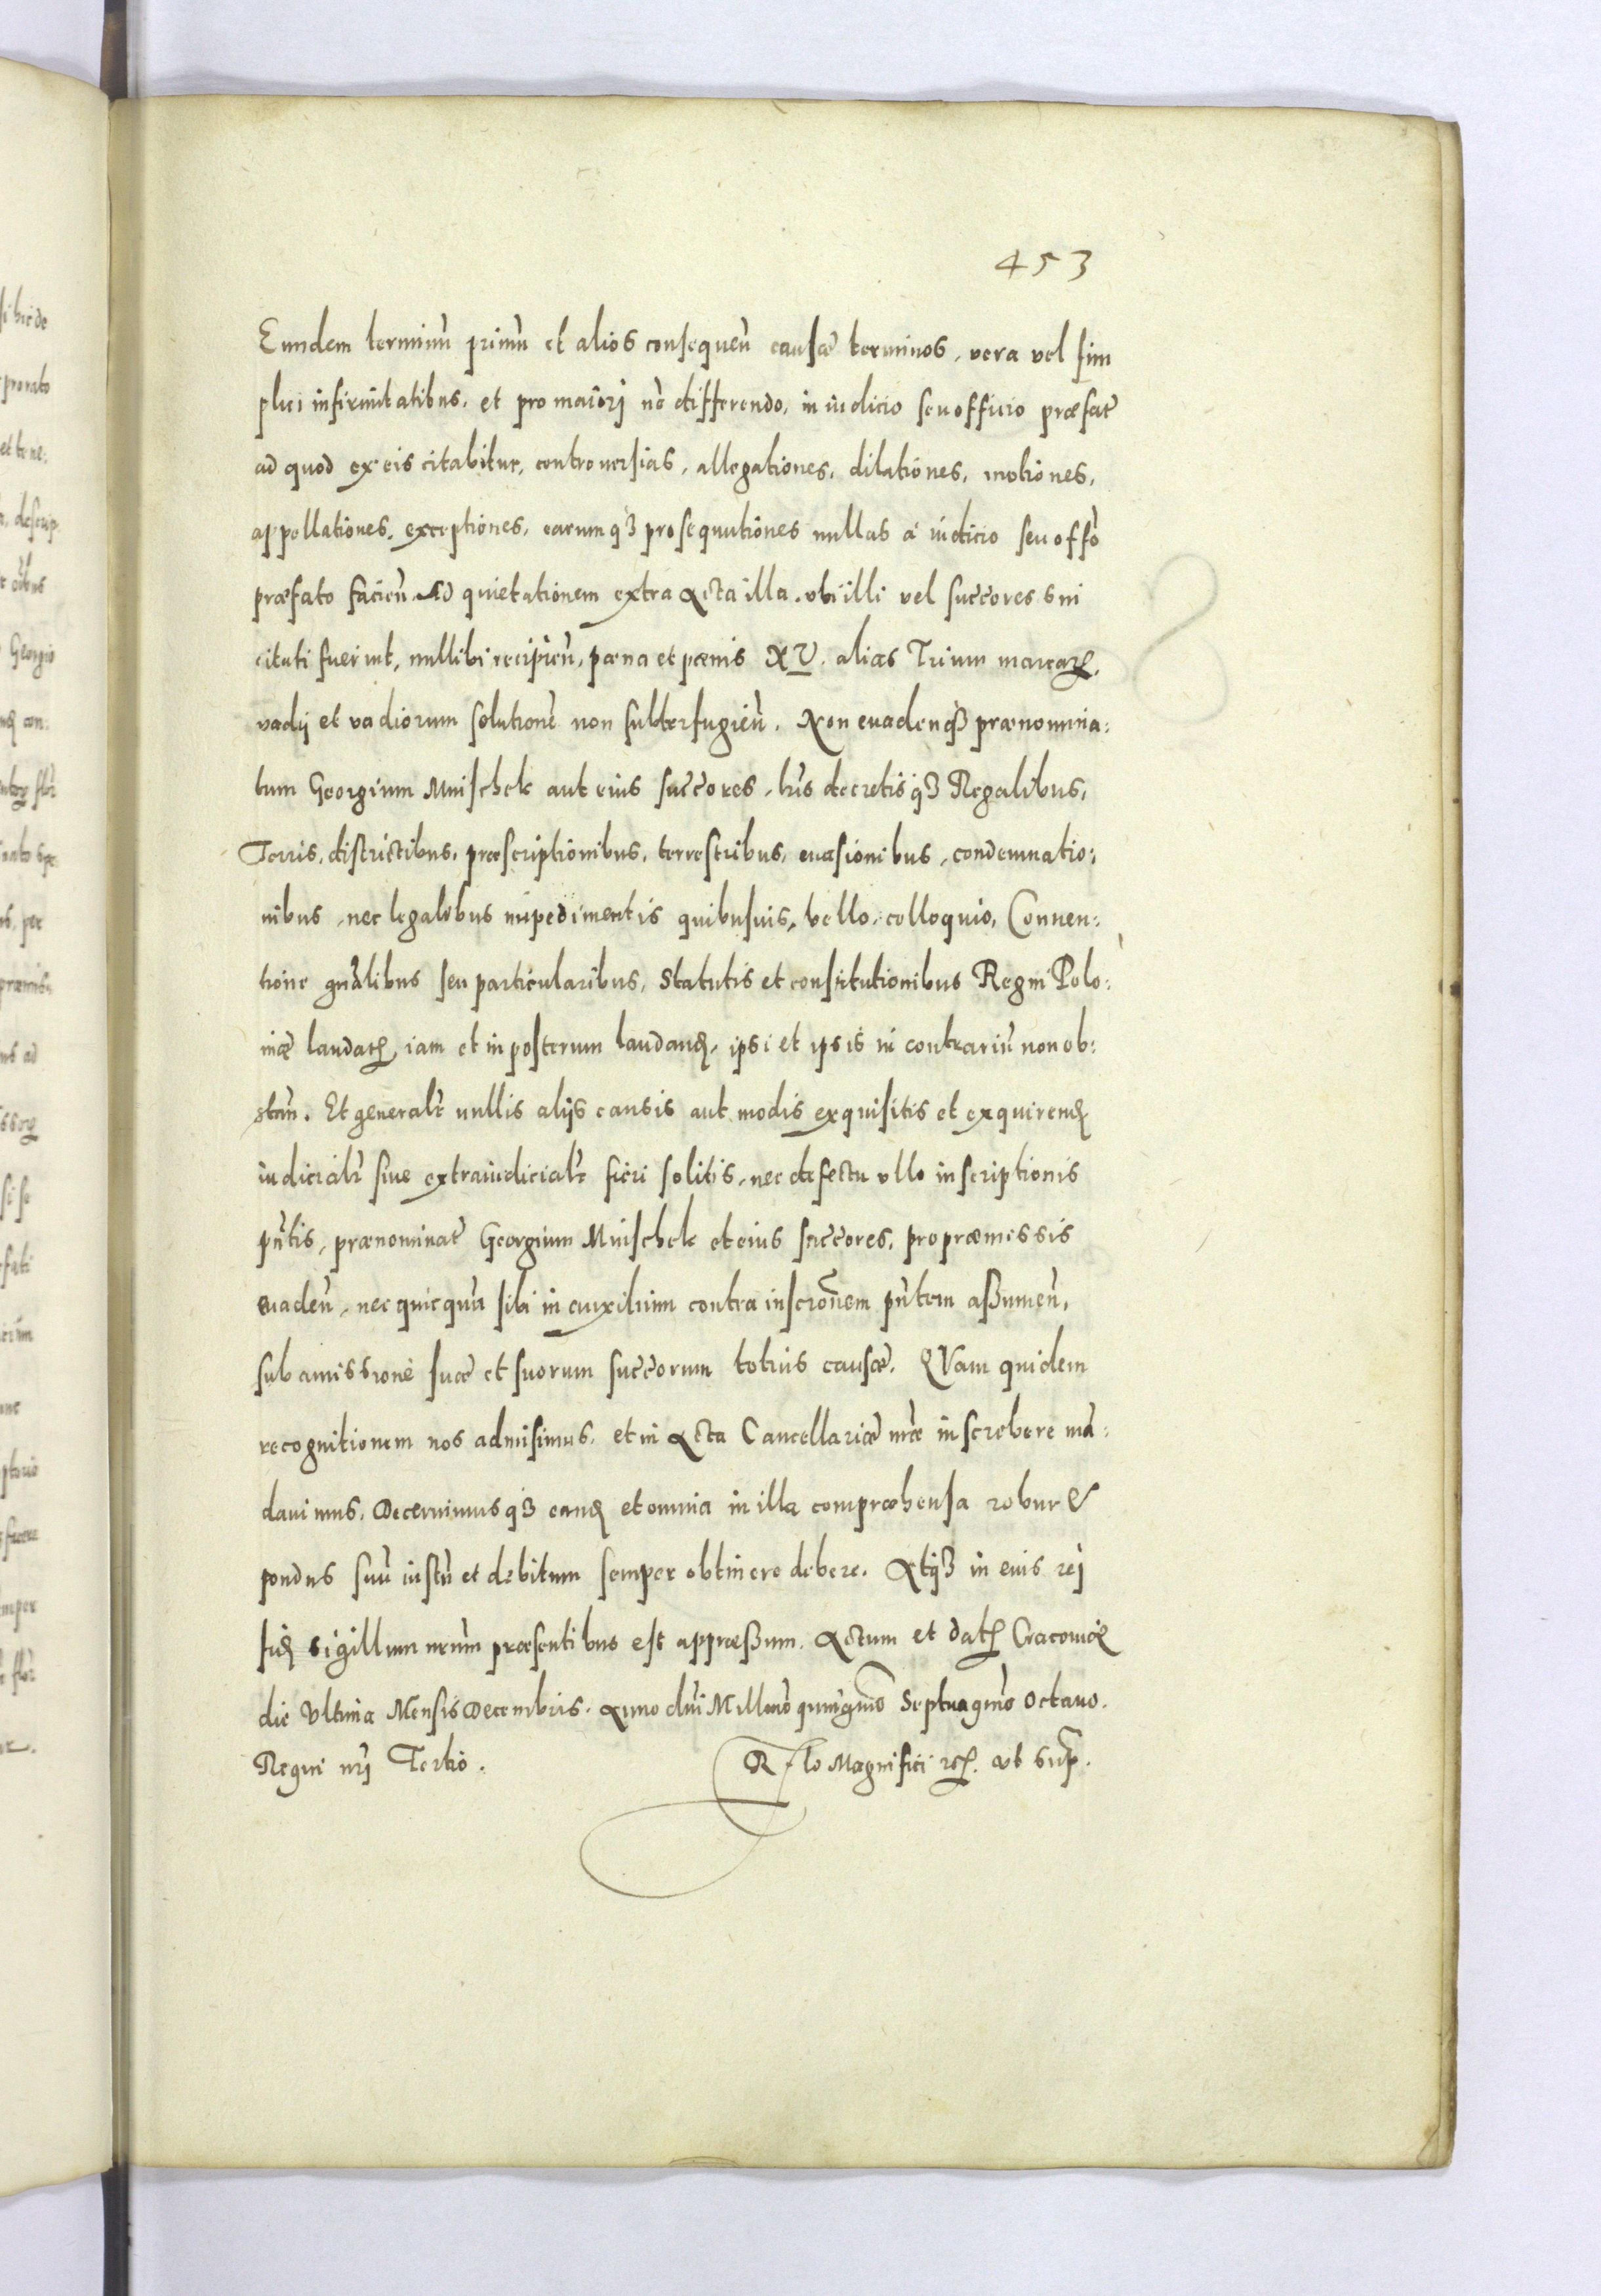 453
Eundem terminũ primũ et alios consequeñ causæ terminos, vera vel sim
plici infirmitatibus, et pro maiorj nõ differendo, in iudicio seu officio præfat̃
ad quod ex eis citabitur, controuersias, allegationes, dilationes, motiones,
appellationes, exceptiones, earumqʒ prosequutiones nullas a iudicio seu offõ
præfato facieñ. Ad quietationem extra Acta illa, vbi illi vel succ̃ores sui
citati fuerint, nullibi recipieñ, pæna et pænis XV. alias Trium marcarꝝ,
vadij et vadiorum solutionẽ non subterfugieñ. Non euadenqʒ prænomina:
tum Georgium Mnischek aut eius succ̃ores, lr̃is decretisqʒ Regalibus,
Terris, districtibus, præscriptionibus, terrestribus, euasionibus, condemnatio:
nibus, nec legalibus impedimentis quibusuis, bello, colloquio, Conuen:
tione gnãlibus seu particularibus, Statutis et constitutionibus Regni Polo:
niæ laudatꝭ iam et in posterum laudandꝭ, ipsi et ipsis in contrariũ non ob:
stañ. Et generalr̃ nullis alijs causis aut modis exquisitis et exquirendꝭ
iudicialr̃ siue extraiudicialr̃ fieri solitis, nec defectu vllo inscriptionis
pñtis, prænominat̃ Georgium Mnischek et eius succ̃ores, pro præmissis
euadeñ, nec quicquã sibi in auxilium contra inscrõnem pñtem aßumeñ,
sub amissionẽ suæ et suorum succ̃orum totius causæ. QVam quidem
recognitionem nos admisimus, et in Acta Cancellariæ nr̃æ inscribere mã:
dauimus, Decernimusqʒ eandꝭ et omnia in illa compræhensa robur &
pondus suũ iustũ et debitum semper obtinere debere. Atqʒ in euis rej
fidꝭ sigillum nr̃um præsentibus est appræßum. Actum et datꝭ Cracouiæ
die Vltima Mensis Decembris. Anno dñi Millmõ quingmõ Septuagmõ octauo.
Regni nr̃j Tertio. Rlo Magnifici rcꝭ. vt supꝭ.